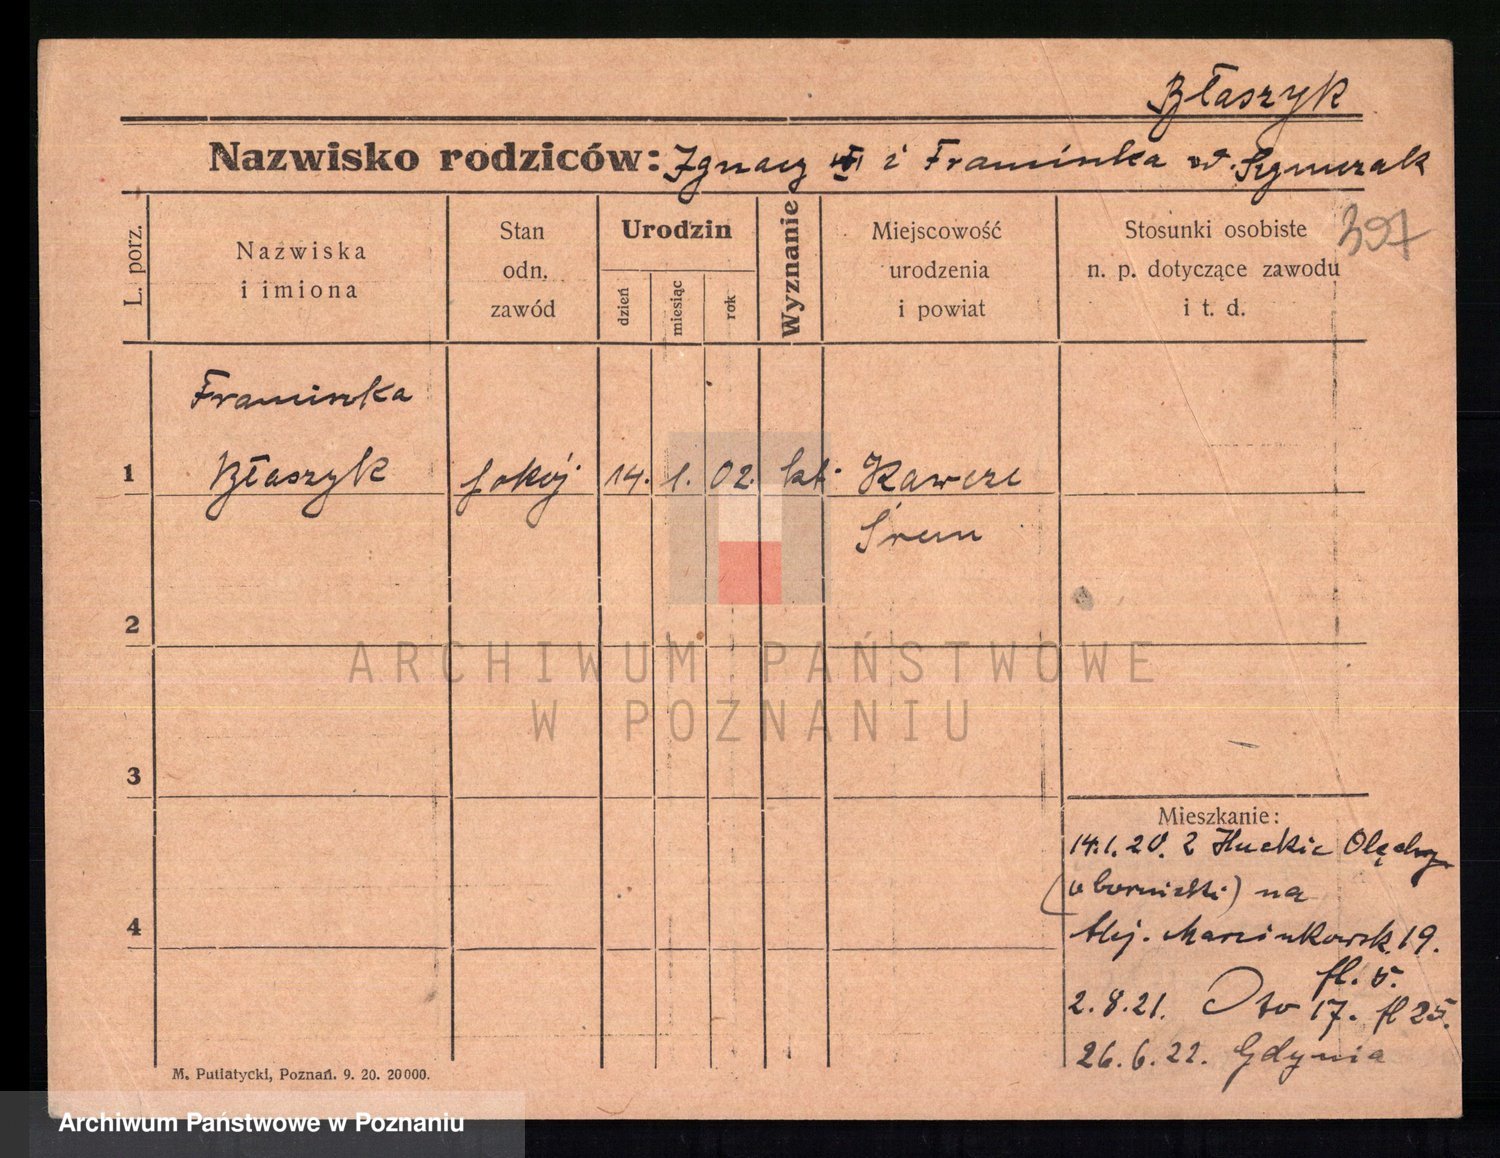 Błaszyk
Nazwisko rodziców: Ignacy i Franciszka
397
L. porz.
Nazwiska
i imiona
Stan
odn.
zawód
Urodzin
dzień
miesiąc
rok
Wyznanie
Miejscowość
urodzenia
i powiat
Stosunki osobiste
n. p. dotyczące zawodu
i t. d.
Franciszka
1 Błaszyk pokój. 14. 1. 02. kt. Kawcze
Śrem
2
3
4
Mieszkanie:
14.1.20. z
(obornicki) na
Alej. Marcinkowsk. 19.
2.8.21. Oto 17. fl 25.
26.6.22. Gdynia
M. Putiatycki, Poznań. 9. 20. 20000.
ARCHIWUM PAŃSTWOWE
W POZNANIU
Archiwum Państwowe w Poznaniu